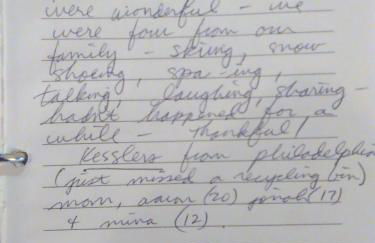 were wonderful - we
were four from our
family - skiing, snow
shoeing, spa-ing,
talking, laughing, sharing -
hadn't happened for a
while - Thankful!
Kesslers from philadelphia
(just missed a recycling bin)
mom, aaron (20) jonah (17)
& mina (12).